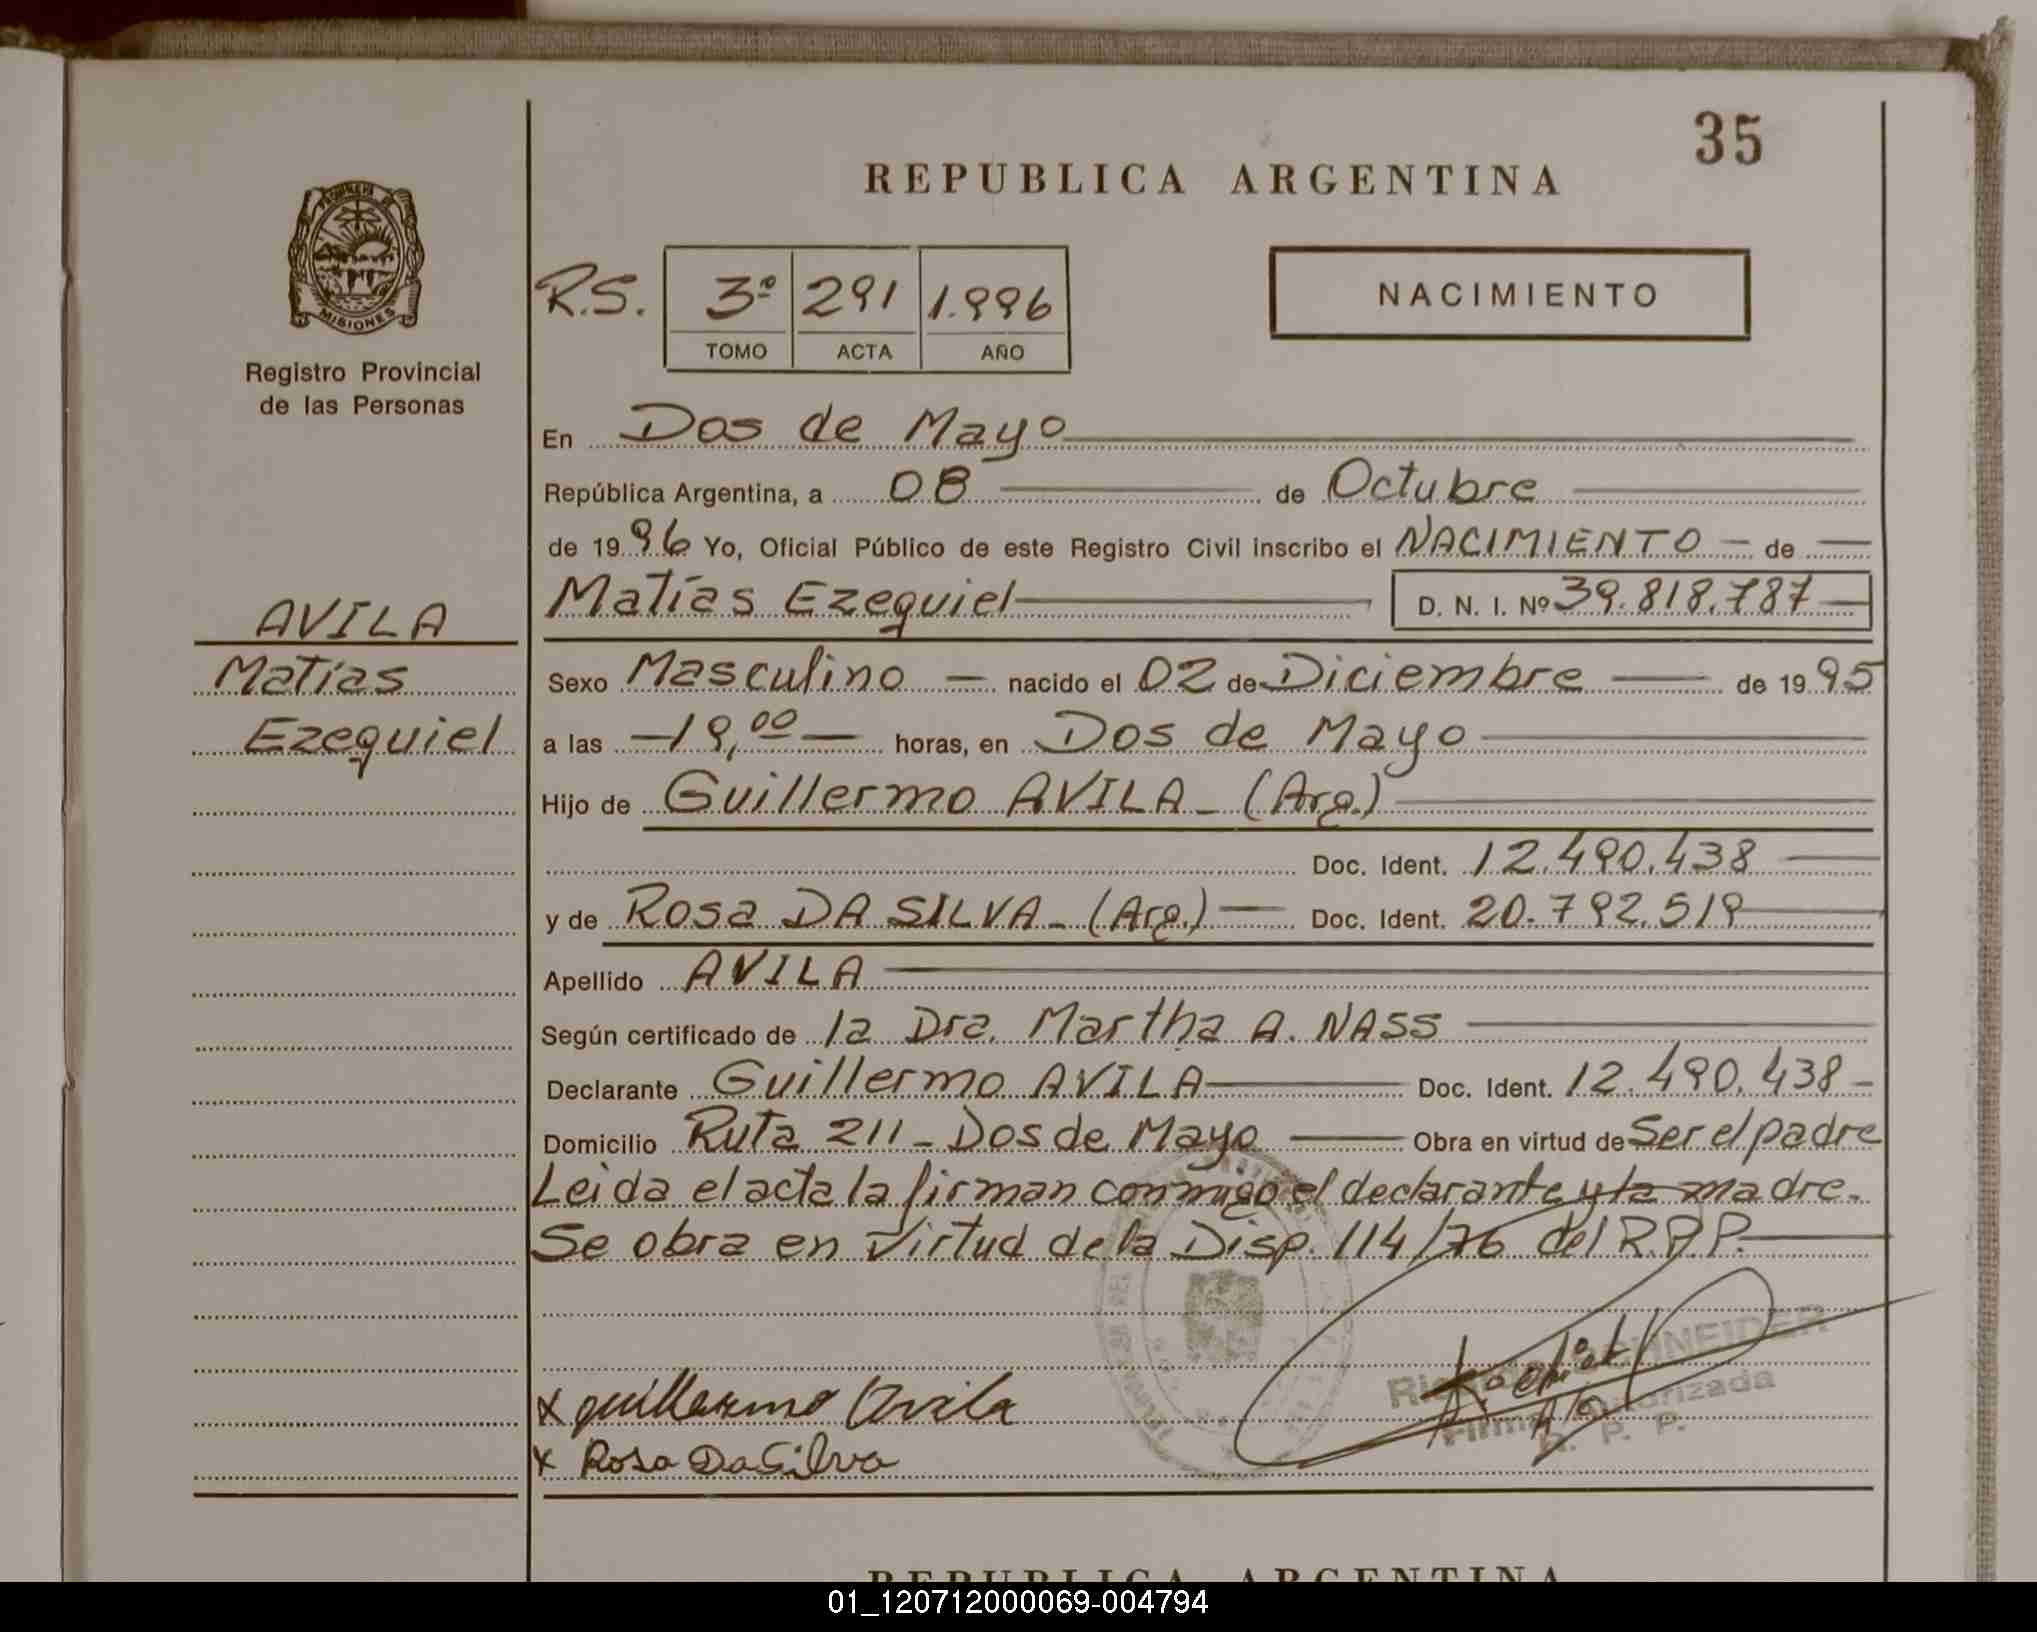 35
REPUBLICA ARGENTINA
PROVINCIA DE
MISIONES
Registro Provincial
de las Personas
R.S. 3º 291 1.996
TOMO ACTA AÑO
NACIMIENTO
En Dos de Mayo
República Argentina, a 08 de Octubre
de 1996 Yo, Oficial Público de este Registro Civil inscribo el NACIMIENTO de
Matías Ezequiel D. N. I. Nº 39.818.787
AVILA
Matías
Ezequiel
Sexo Masculino nacido el 02 de Diciembre de 1995
a las 19,00 horas, en Dos de Mayo
Hijo de Guillermo AVILA - (Arg.)
Doc. Ident. 12.490.438
y de Rosa DA SILVA - (Arg.) Doc. Ident. 20.792.519
Apellido AVILA
Según certificado de la Dra. Martha A. NASS
Declarante Guillermo AVILA Doc. Ident. 12.490.438
Domicilio Ruta 211 - Dos de Mayo Obra en virtud de Ser el padre
Leida el acta la firman conmigo el declarante y la madre.
Se obra en virtud de la Disp. 114/76 del R.P.P.
SCHNEIDER
Firma Autorizada
R. P. P.
x guillermo Avila
x Rosa Da Silva
REPUBLICA ARGENTINA
01_120712000069-004794